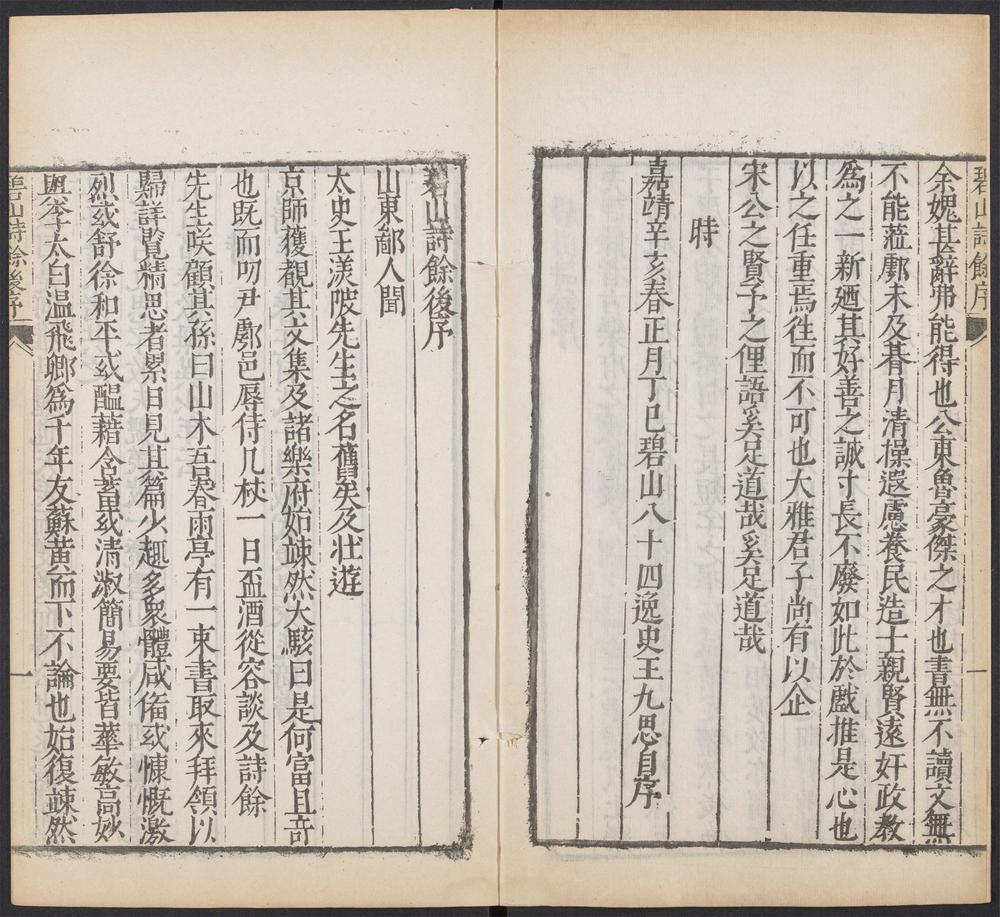 碧山詩餘序
余媿甚辭弗能得也公東魯豪傑之才也書無不讀文無
不能蒞鄠未及朞月清操遐慮養民造士親賢遠奸政教
為之一新廼其好善之誠寸長不廢如此於戲推是心也
以之任重焉往而不可也大雅君子尚有以企
宋公之賢予之俚語奚足道哉奚足道哉
時
嘉靖辛亥春正月丁巳碧山八十四逸史王九思自序
碧山詩餘後序
山東鄙人聞
太史王渼陂先生之名舊矣及壯遊
京師獲覩其文集及諸樂府始竦然大駭曰是何富且奇
也既而叨尹鄠邑辱侍几杖一日盃酒從容談及詩餘
先生咲顧其孫曰山木吾春雨亭有一束書取來拜領以
歸詳覽精思者累日見其篇少趣多眾體咸備或慷慨激
烈或舒徐和平或醞藉含蓄或清淑簡易要皆華敏高妙
與李太白溫飛卿為千年友蘇黃而下不論也始復竦然
碧山詩餘後序
一